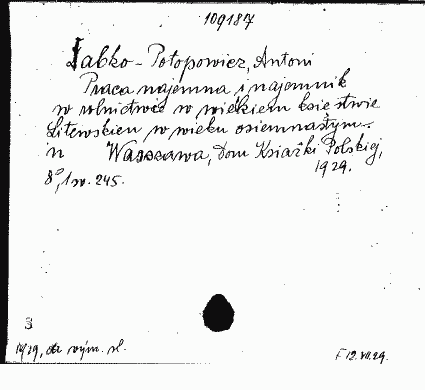 109187
Żabko-Potopowicz, Antoni
Praca najemna i najemnik
w rolnictwie w wielkiem księstwie
Litewskiem w wieku osiemnastym.
n Warszawa, Dom Książki Polskiej,
1929.
8°, 1 w. 245.
3
wým. sl.
F 12.VII.29.